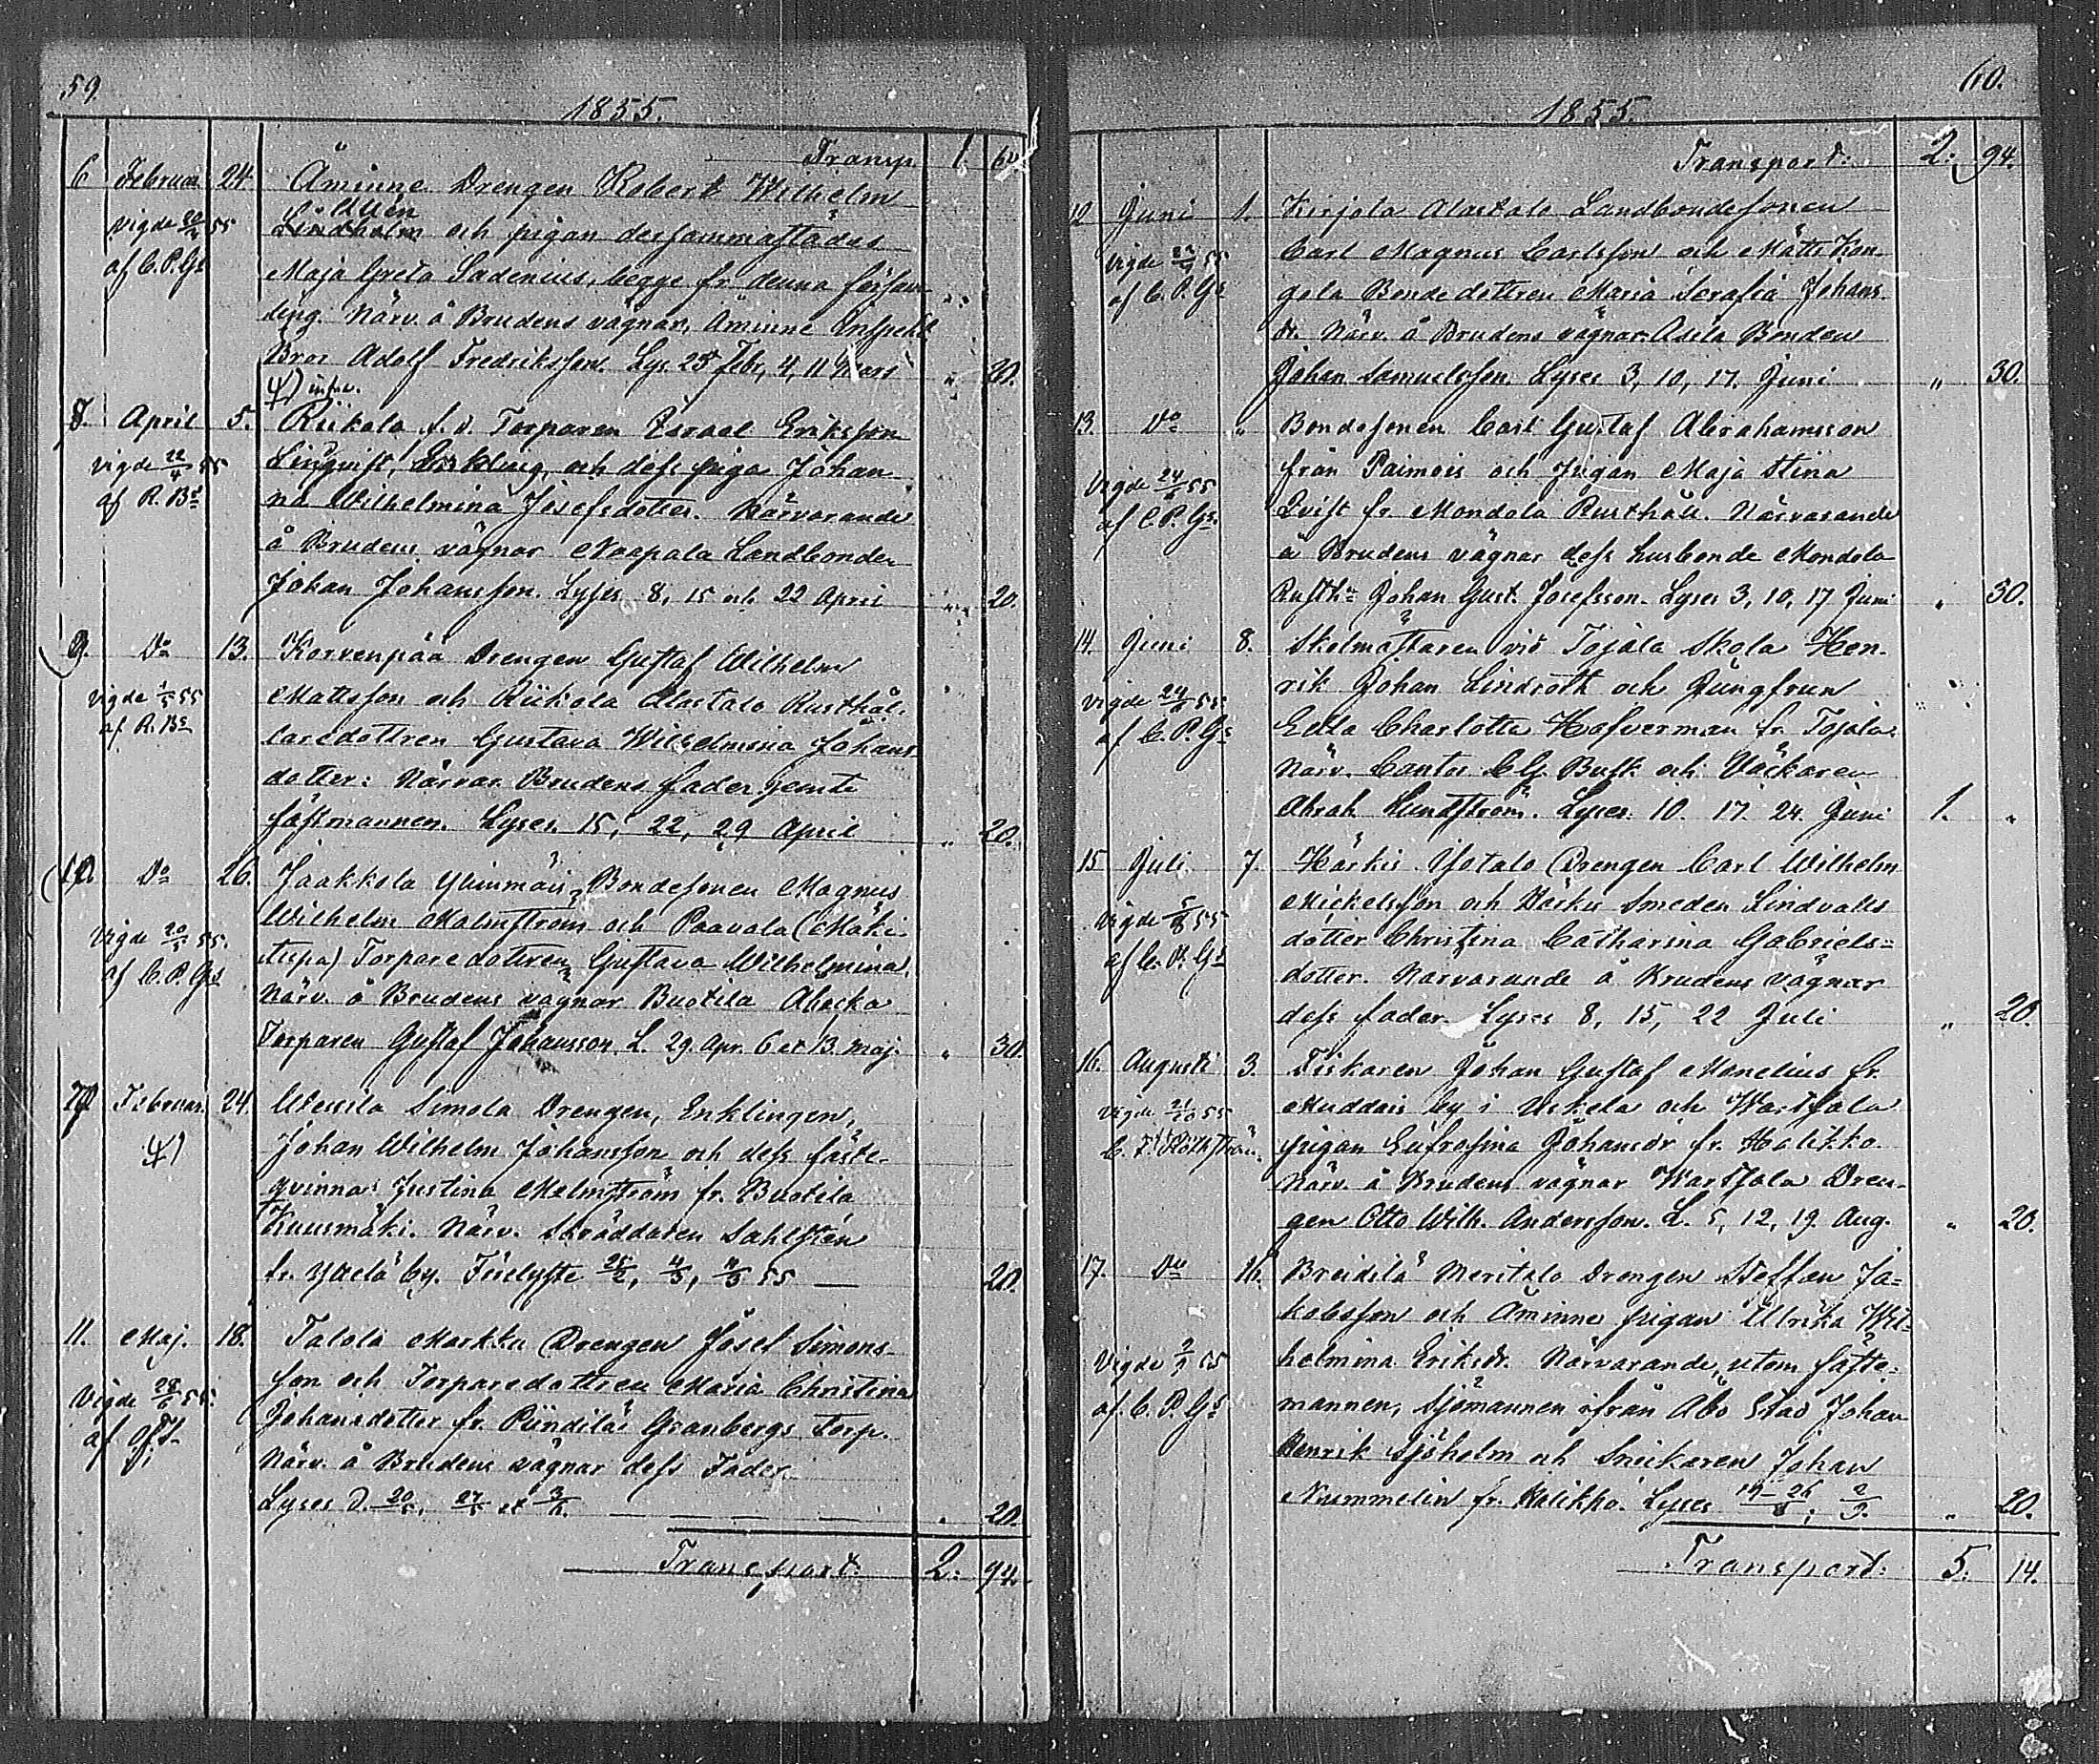 59.
1855.
Transp. 1. 60.
6 Februar. 24. Åminne Drengen Robert Wilhelm
Vigde 20/4 55 Lindholm och pigan dersammastädes
af C. P. Gs Maja Greta Sadenius, begge fr. denna försam-
ling. Närv. å Brudens vägnar, Åminne Inspekt.
Bror Adolf Fredriksson. Lys. 25 Febr, 4, 11 Mars " 20.
8. April 5. Riikola f. d. Torparen Israel Eriksson
Vigde 22/4 55 Linqvist, Enkling, och dess piga Johan-
af R. Bs na Wilhelmina Josefsdotter. Närvarande
å Brudens vägnar Naapala Landbonden
Johan Johansson. Lyses 8, 15 och 22 April " 20.
9. Do 13. Korvenpää Drengen Gustaf Wilhelm
Vigde 1/5 55 Mattsson och Riikola Alastalo Rusthål-
af R. Bs laredottren Gustava Wilhelmina Johans-
dotter: Närvar. Brudens fader jemte
fästmannen. Lyses. 15, 22, 29 April " 20.
10. Do 26. Jaakkola Ylinmäis Bondesonen Magnus
Vigde 20/5 55. Wilhelm Malmström och Paavola (Mäki-
af C. P. Gs tupa) Torparedottren Gustava Wilhelmina.
Närv. å Brudens vägnar Buotila Abacka
Torparen Gustaf Johansson. L. 29. Apr. 6 et 13. Maj. " 30.
7 Februar. 24. Simola Drengen, Enklingen,
Johan Wilhelm Johansson och dess fäste-
qvinna Justina Malmström fr. Buotila
Kuusmäki. Närv. Skräddaren Sahlstén
fr. by. 25/2, 4/3, 11/3 55 — 20.
11. Maj. 18. Talola Markku Drengen Josef Simons-
Vigde 28/6 55. son och Torparedottren Maria Christina
af Johansdotter fr. Piindilä Granbergs torp.
Närv. å Brudens vägnar dess Fader.
Lyses d. 20/5, 27/5 et 3/6. " 20.
Transport. 2. 94.
60.
1855.
Transport. 2. 94.
12 Juni 1. Kirjola Alastalo Landbondesonen
Vigde 55 Carl Magnus Carlsson och Mätti Kon-
af C. P. Gs gola Bondedottren Maria Serafia Johans-
dr. Närv. å Brudens vägnar Asila Bonden
Johan Samuelsson Lyses 3, 10, 17. Juni " 30.
13. Do " Bondesonen Carl Gustaf Abrahamsson
Vigde 24/6 55 från Paimois och pigan Maja Stina
af C. P. Gs. Qvist fr. Mondola Rusthåll. Närvarande
å Brudens vägnar dess husbonde Mondola
Rusth. Johan Gust. Josefsson. Lyses 3, 10, 17 Juni " 30.
14. Juni 8. Skolmästaren vid Tojala Skola Hen-
Vigde 24/6 55 rik Johan Lindroth och Jungfrun
af C. P. Gs Edla Charlotta Hafverman fr. Tojala.
Närv. Cantor Busk och Väckaren
Abrah. Lundström. Lyses. 10. 17. 24 Juni 1. "
15 Juli 7. Härkis Yotalo Drengen Carl Wilhelm
Vigde 5/8 55 Mickelsson och Härkis Smeden Lindvalls
af C. P. Gs dotter Christina Catharina Gabriels-
dotter. Närvarande å Brudens vägnar
dess fader. Lyses 8, 15, 22 Juli " 20.
16. Augusti 3. Fiskaren Johan Gustaf Manelius fr.
Vigde 21/10 55 Muddais by i Uskela och Wartsala
pigan Eufrosina Johansdr. fr. Halikko.
Närv. å Brudens vägnar Wartsala Dren-
gen Otto Wilh. Andersson. L. 5, 12, 19. Aug. " 20.
17. Do 16. Breidilä Meritalo Drengen Steffan Ja-
kobsson och Åminne pigan Ulrika Wil-
helmina Eriksdr. Närvarande, utom fäste-
af C. P. Gs mannen, Sjömannen ifrån Åbo Stad Johan
Henrik Sjöholm och Snickaren Johan
Nummelin fr. Halikko. Lyses 19–26/8; 2/9. " 20.
Transport. 5. 14.